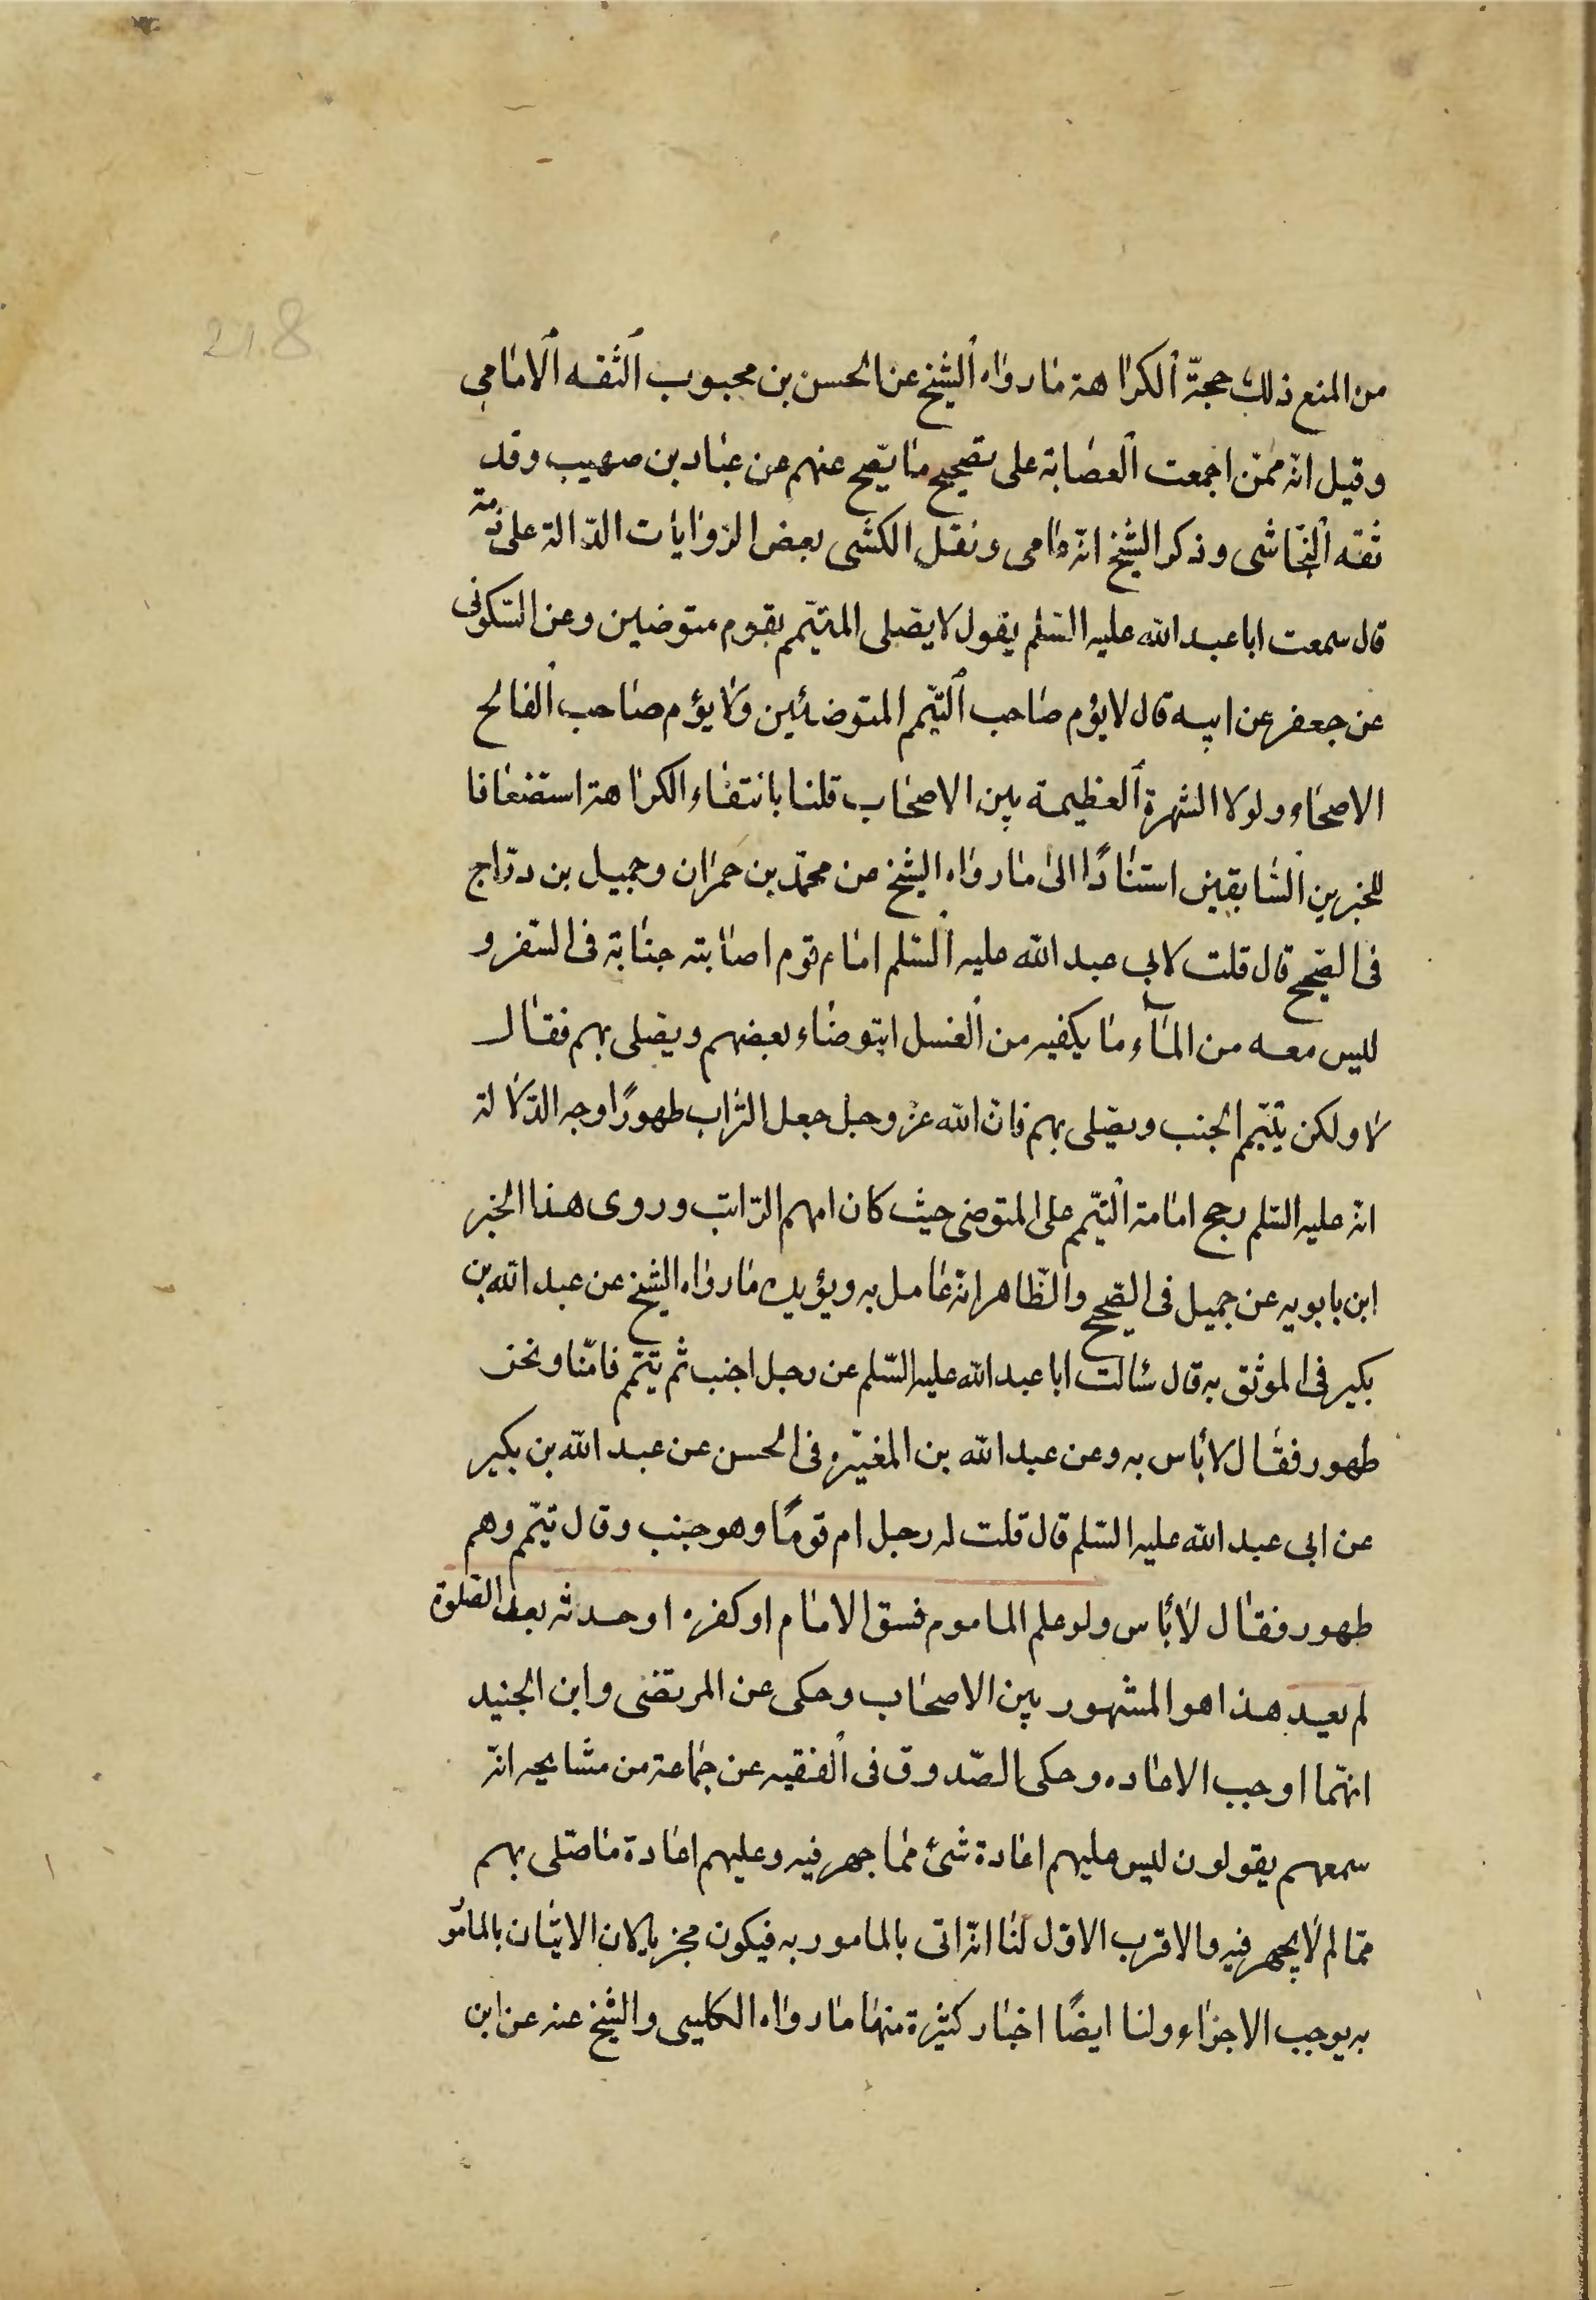 218
من المنع ذلك حجّة الكراهة ما رواه الشيخ عن الحسن بن محبوب الثقه الامامي
وقيل انه ممّن اجمعت العصابة على تصحيح ما يصّح عنهم عن عباد بن صهيب وقد
ثقه النجاشى وذكر الشيخ انه عامى ونقل الكشى بعض الروايات الدّالة على ذمه
قال سمعت ابا عبد الله عليه السّلم يقول لا يصّلى المتيمّم بقوم متوضئين وعن السّكونى
عن جعفر عن ابيه قال لا يؤم صاحب التيّمم المتوضئين ولا يؤم صاحب الفالج
الاصحاء ولولا الشهرة العظيمة بين الاصحاب قلنا بانتفاء الكراهة استضعافا
للخبرين السّابقين استنادًا الى ما رواه الشيخ عن محمّد بن حمران وجميل بن درّاج
فى الصّحيح قال قلت لابى عبد الله عليه السّلم امام قوم اصابته جنابة فى السّفر و
ليس معه من المآء ما يكفيه من الغسل ايتوضاء بعضهم ويصّلى بهم فقال
لا ولكن يتيّمم الجنب ويصّلى بهم فانّ الله عزّ وجل جعل التراب طهورًا وجه الدّلالة
انه عليه السّلم رجح امامة التيّمم على المتوضى حيث كان امهم الرّاتب وروى هذا الخبر
ابن بابويه عن جميل فى الصّحيح والظّاهر انه عامل به ويؤيده ما رواه الشيخ عن عبد الله بن
بكير فى الموثق به قال سئالت ابا عبد الله عليه السّلم عن رجل اجنب ثم تيّمم فامّنا ونحن
طهور فقال لا باس به وعن عبد الله بن المغيّره فى الحسن عن عبد الله بن بكير
عن ابى عبد الله عليه السّلم قال قلت له رجل ام قومًا وهو جنب وقال تيمّم وهم
طهور فقال لا باس ولو علم الماموم فسق الامام او كفره او حدثه بعد الصّلوة
لم يعيد هذا هو المشهور بين الاصحاب وحكى عن المرتضى وابن الجنيد
انهما اوجب الاعاده وحكى الصّدوق فى الفقيه عن جماعة من مشايخه انّه
سمعهم يقولون ليس عليهم اعادة شئ ممّا جهر فيه وعليهم اعادة ما صّلى بهم
ممّا لم لا يجهر فيه والاقرب الاوّل لنا انه اتى بالمامور به فيكون مجزيا لان الاتيان بالمامو
به يوجب الاجزاء ولنا ايضًا اخبار كثيرة منها ما رواه الكلينى والشيخ عنه عن ابن